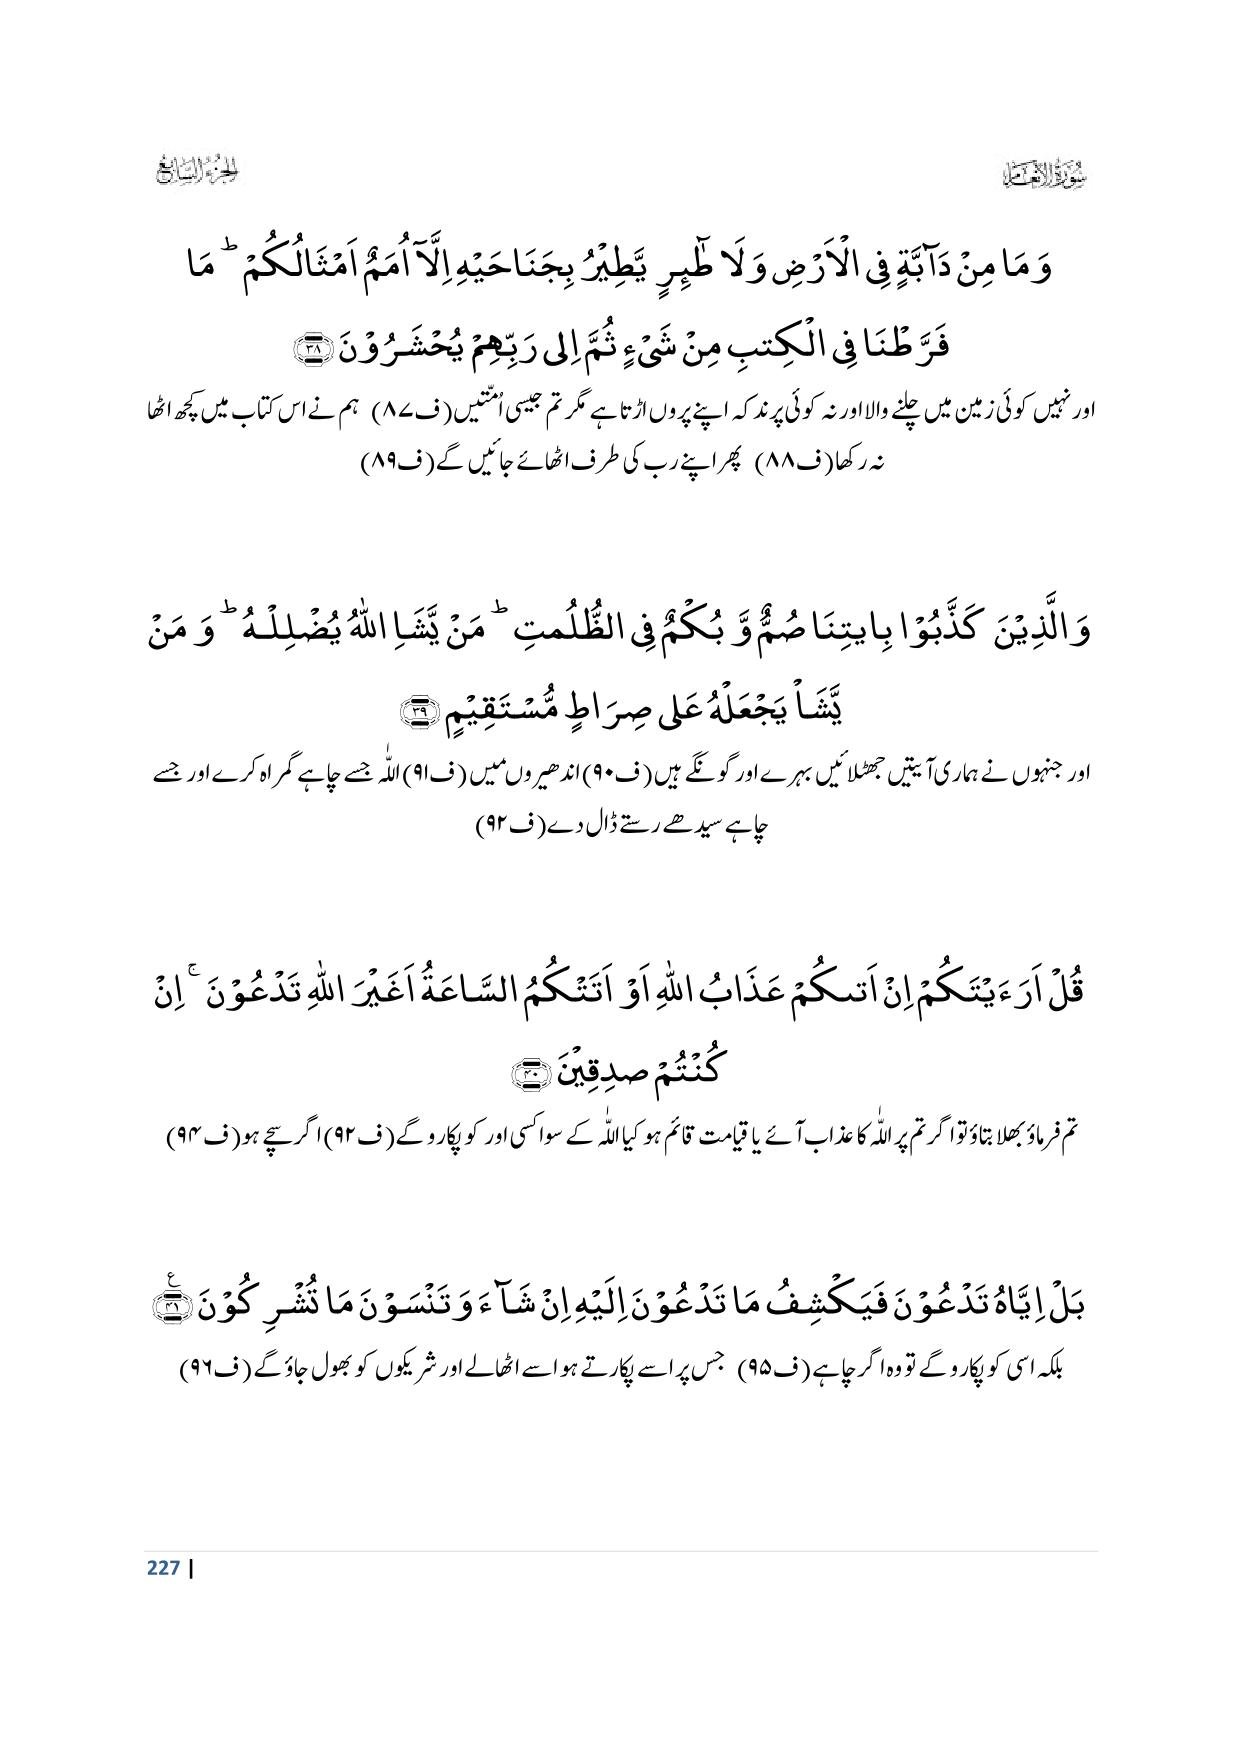 سُوْرَۃُ الْاَنْعَام
الجزء السابع
وَ مَا مِنْ دَآبَّةٍ فِی الْاَرْضِ وَ لَا طٰٓىٕرٍ یَّطِیْرُ بِجَنَاحَیْهِ اِلَّاۤ اُمَمٌ اَمْثَالُكُمْ ؕ مَا
فَرَّطْنَا فِی الْكِتٰبِ مِنْ شَیْءٍ ثُمَّ اِلٰى رَبِّهِمْ یُحْشَرُوْنَ ﴿۳۸﴾
اور نہیں کوئی زمین میں چلنے والا اور نہ کوئی پرند کہ اپنے پروں اڑتا ہے مگر تم جیسی اُمّتیں (ف۸۷) ہم نے اس کتاب میں کچھ اٹھا
نہ رکھا (ف۸۸) پھر اپنے رب کی طرف اٹھائے جائیں گے (ف۸۹)
وَ الَّذِیْنَ كَذَّبُوْا بِاٰیٰتِنَا صُمٌّ وَّ بُكْمٌ فِی الظُّلُمٰتِ ؕ مَنْ یَّشَاِ اللّٰهُ یُضْلِلْهُ ؕ وَ مَنْ
یَّشَاْ یَجْعَلْهُ عَلٰى صِرَاطٍ مُّسْتَقِیْمٍ ﴿۳۹﴾
اور جنہوں نے ہماری آیتیں جھٹلائیں بہرے اور گونگے ہیں (ف۹۰) اندھیروں میں (ف۹۱) اللّٰہ جسے چاہے گمراہ کرے اور جسے
چاہے سیدھے رستے ڈال دے (ف۹۲)
قُلْ اَرَءَیْتَكُمْ اِنْ اَتٰىكُمْ عَذَابُ اللّٰهِ اَوْ اَتَتْكُمُ السَّاعَةُ اَغَیْرَ اللّٰهِ تَدْعُوْنَ ۚ اِنْ
كُنْتُمْ صٰدِقِیْنَ ﴿۴۰﴾
تم فرماؤ بھلا بتاؤ تو اگر تم پر اللّٰہ کا عذاب آئے یا قیامت قائم ہو کیا اللّٰہ کے سوا کسی اور کو پکارو گے (ف۹۲) اگر سچے ہو (ف۹۴)
بَلْ اِیَّاهُ تَدْعُوْنَ فَیَكْشِفُ مَا تَدْعُوْنَ اِلَیْهِ اِنْ شَآءَ وَ تَنْسَوْنَ مَا تُشْرِكُوْنَ ﴿۴۱﴾ ع
بلکہ اسی کو پکارو گے تو وہ اگر چاہے (ف۹۵) جس پر اسے پکارتے ہو اسے اٹھالے اور شریکوں کو بھول جاؤ گے (ف۹۶)
227 |